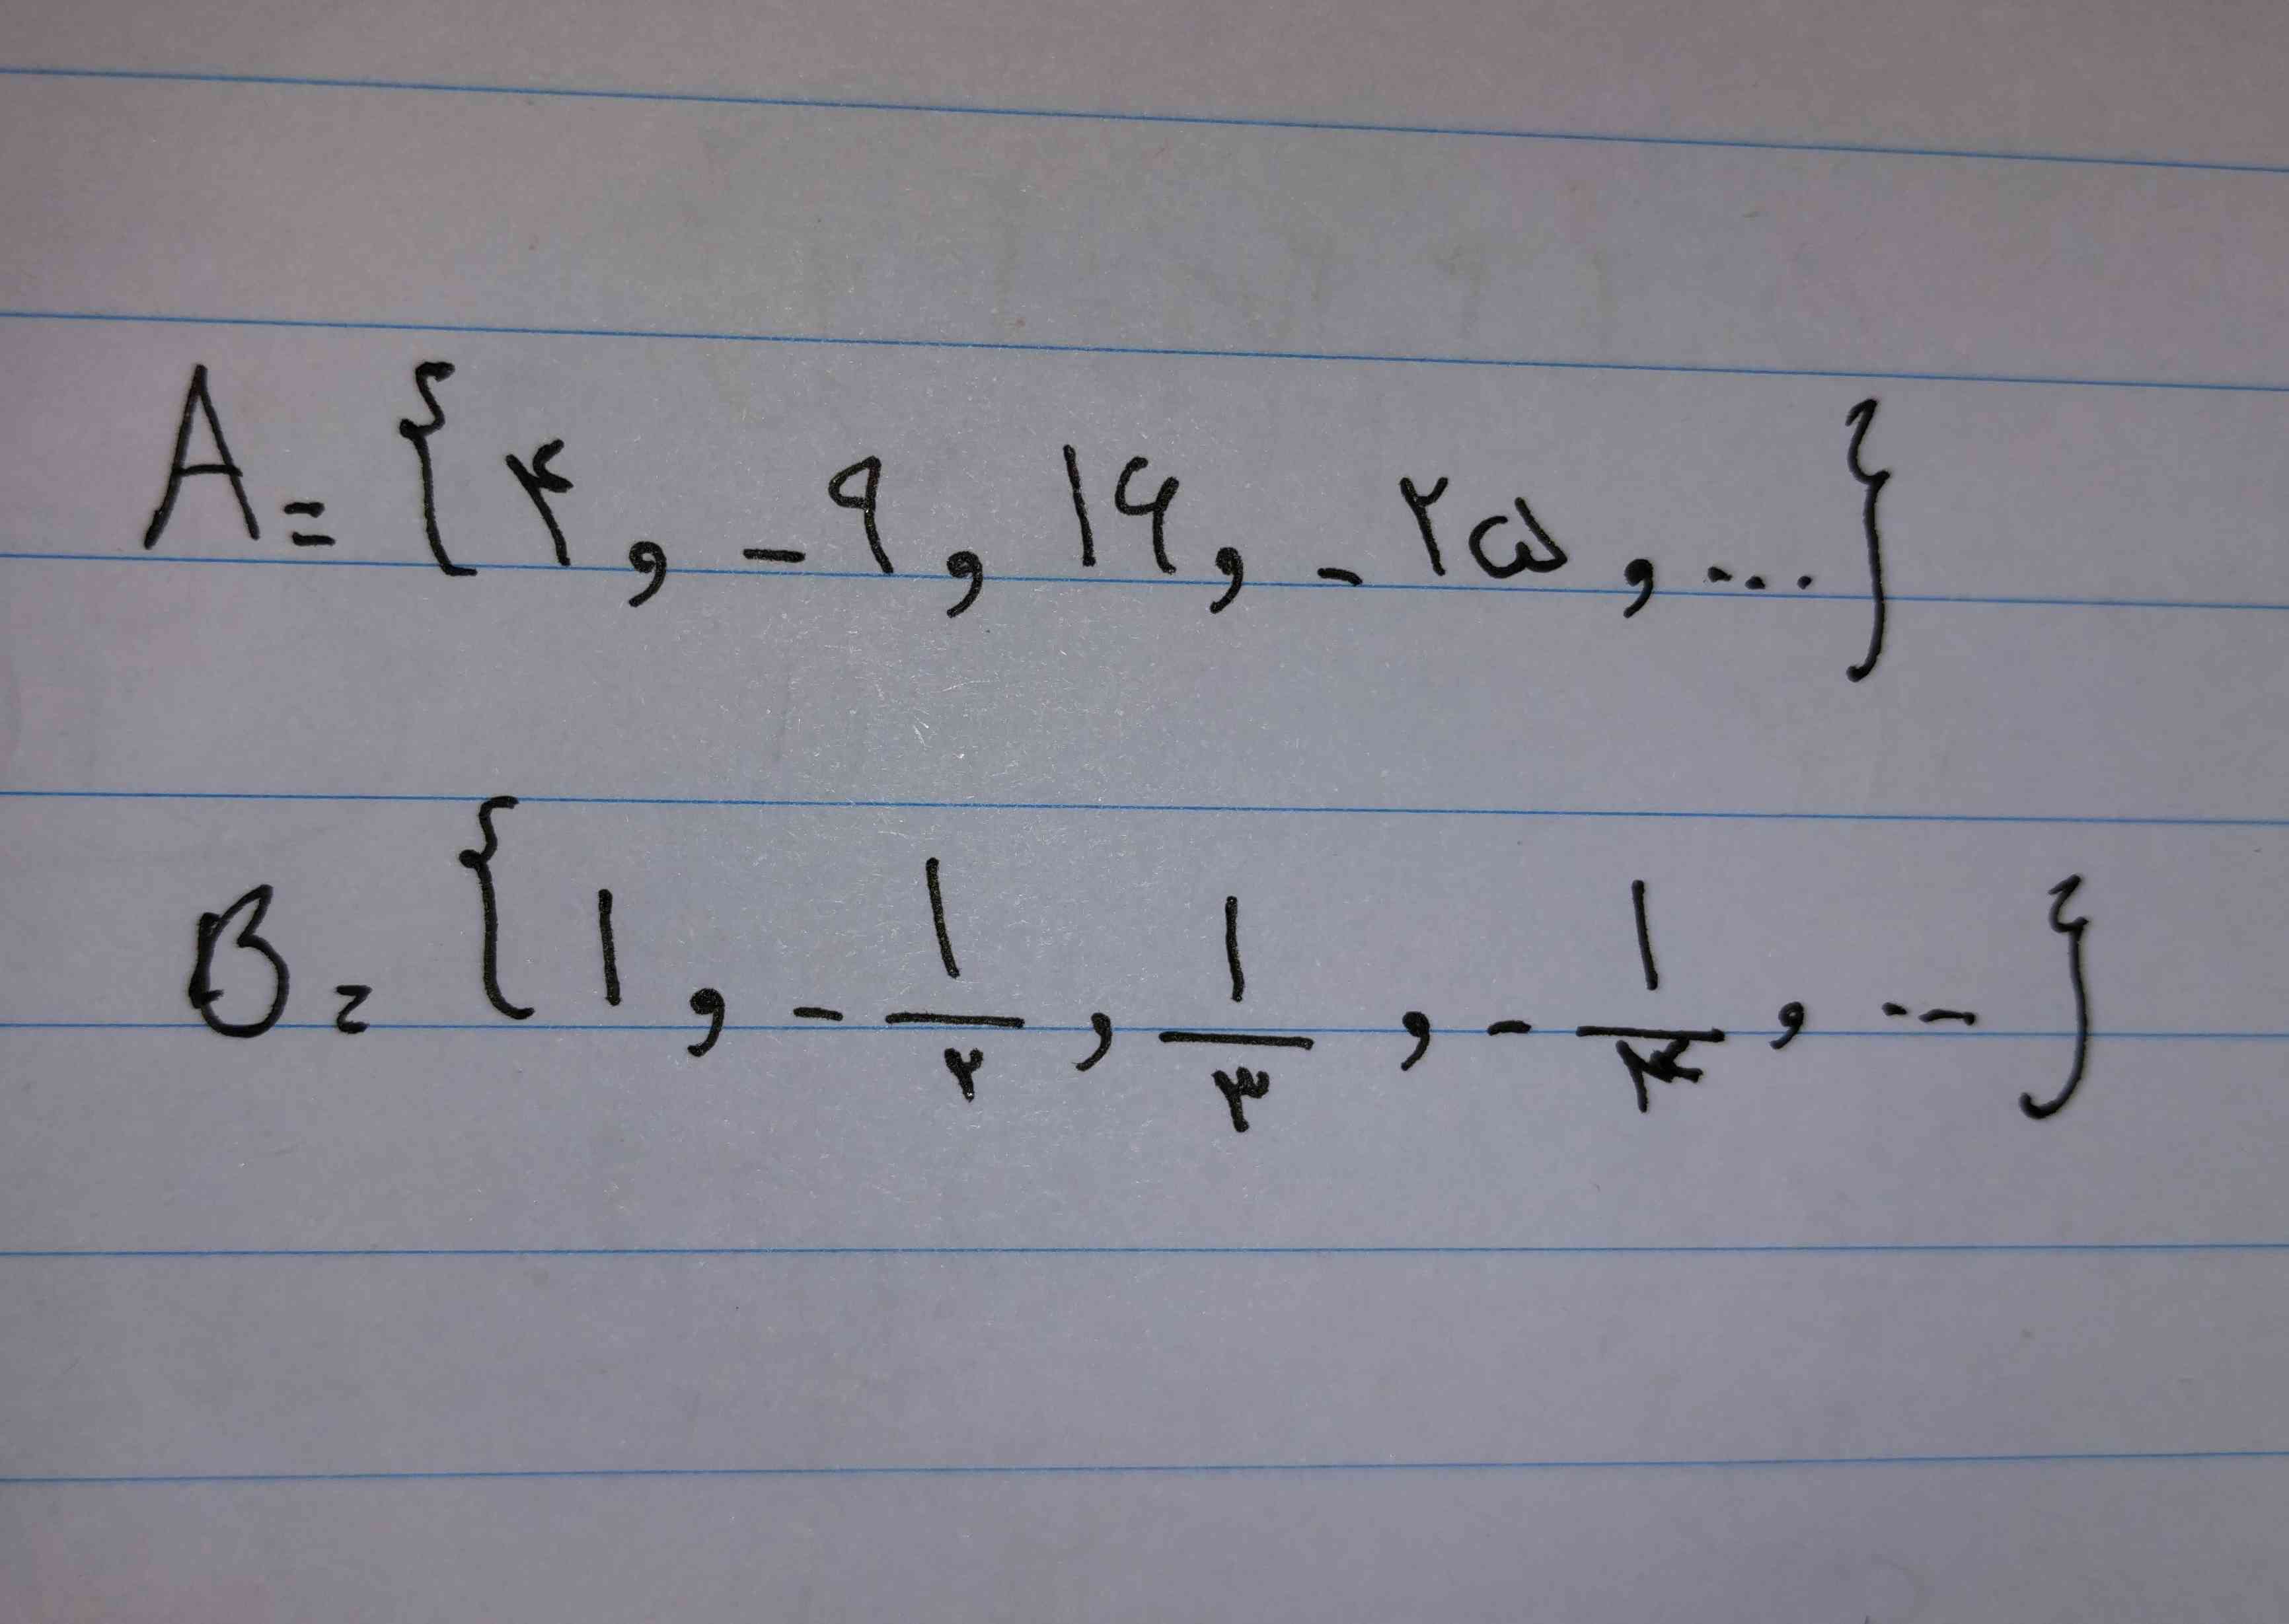 A = { ۴ , - ۹ , ۱۶ , - ۲۵ , ... }
B = { ۱ , - ۱/۲ , ۱/۳ , - ۱/۴ , ... }